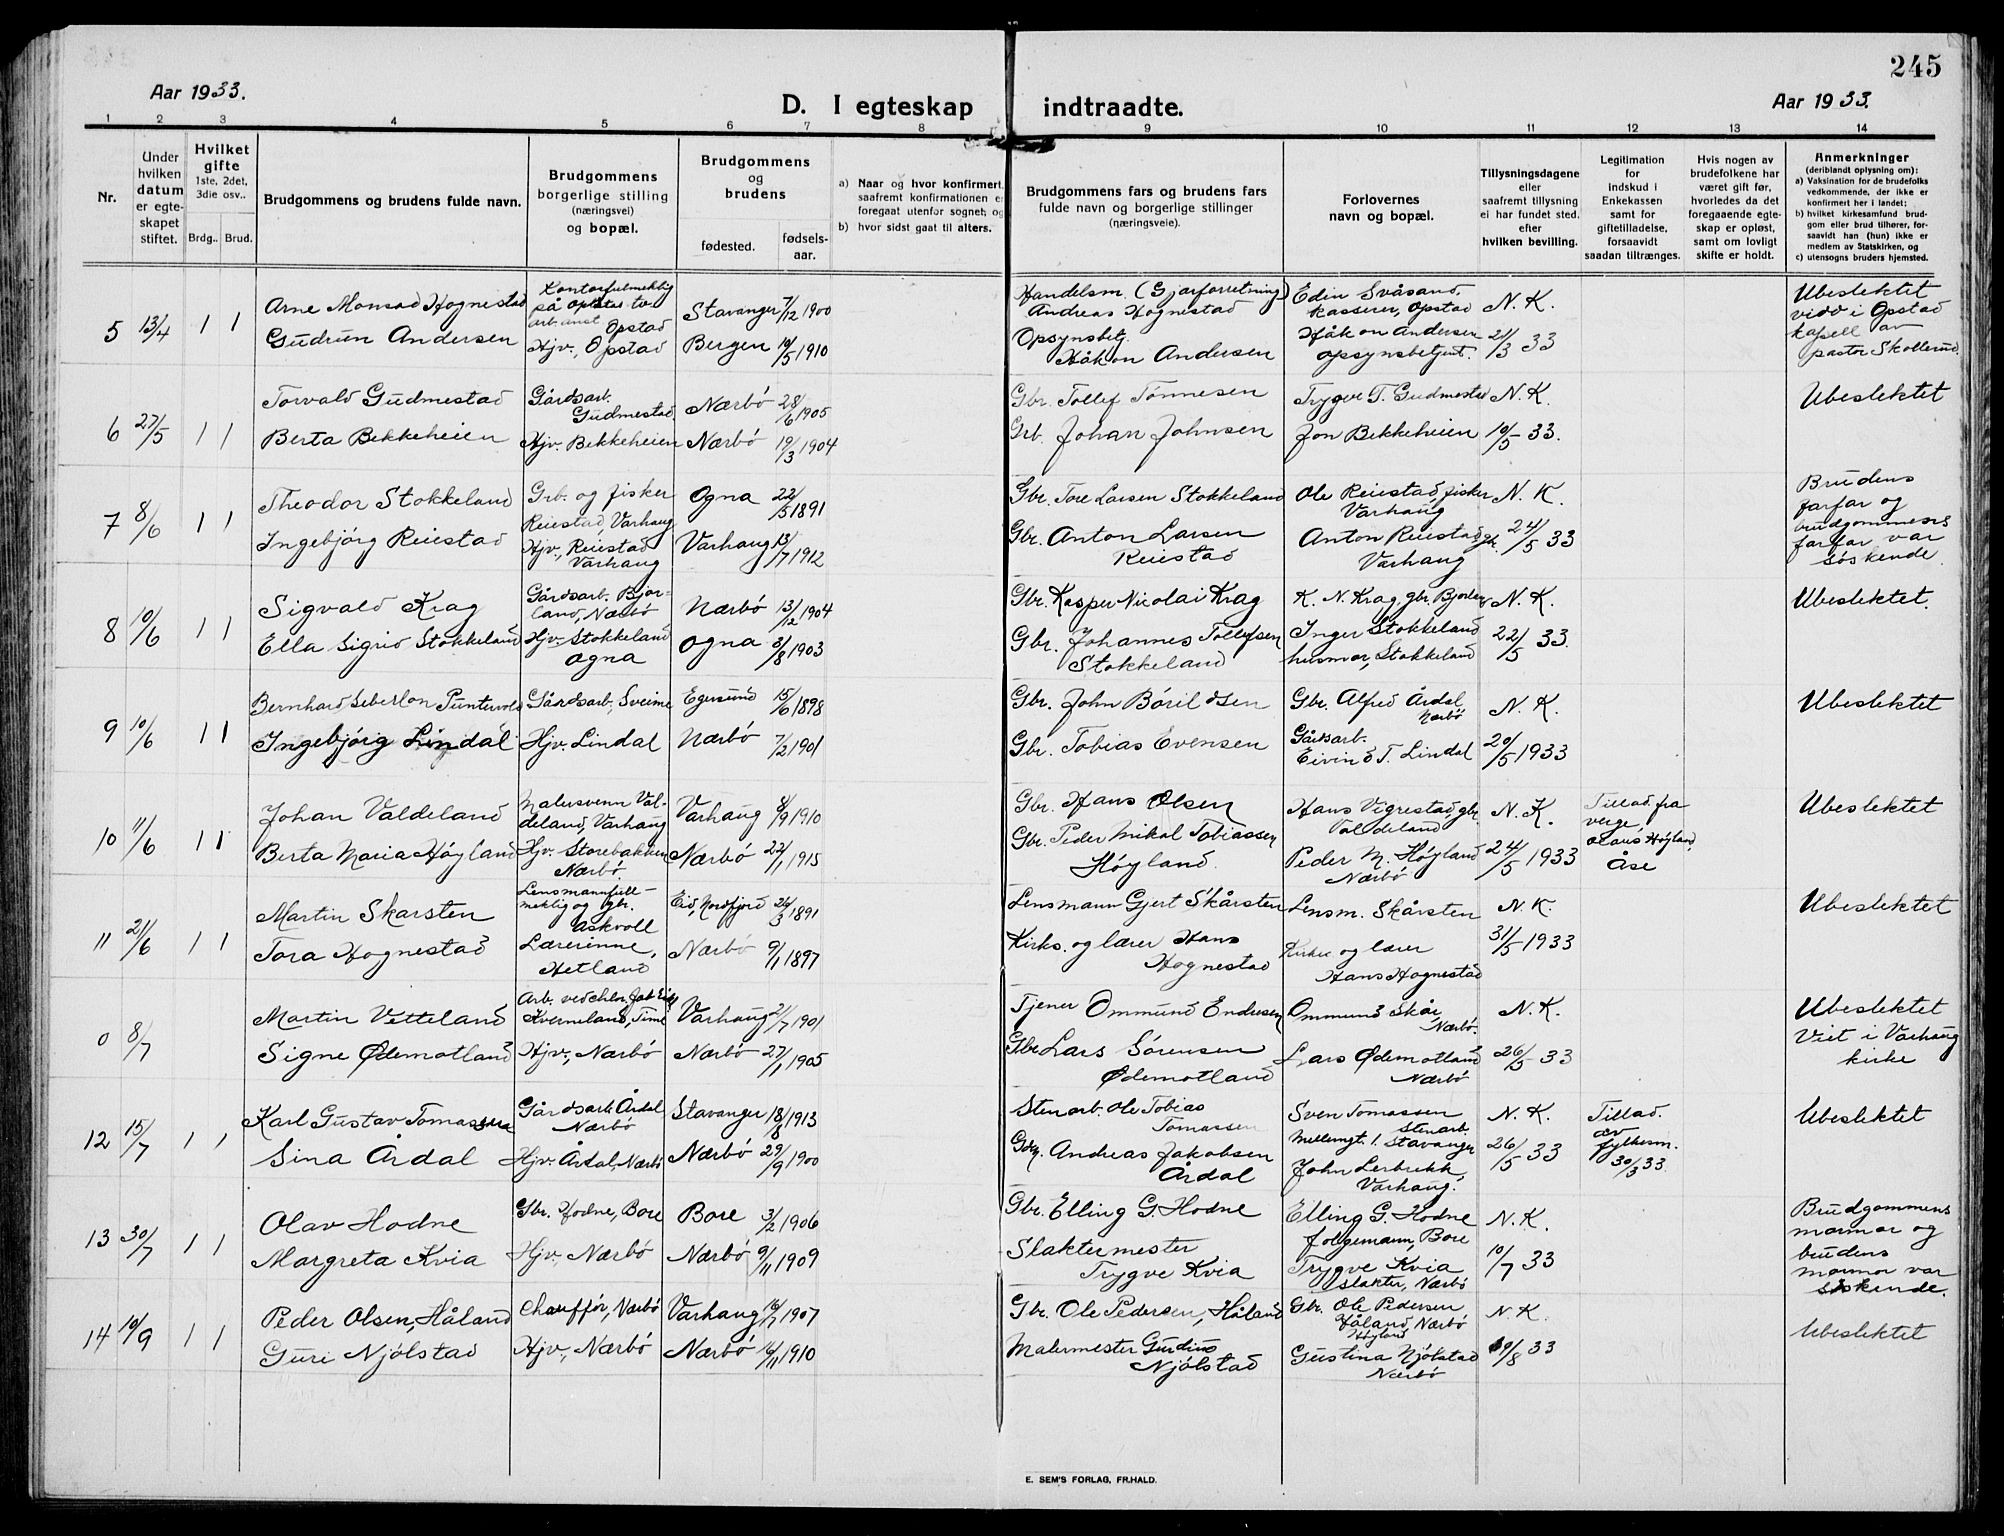 245
Aar 1933.
D. I egteskap indtraadte.
Aar 1933.
1 2 3 4 5 6 7 8 9 10 11 12 13 14
Nr.
Under hvilken datum er egteskapet stiftet.
Hvilket gifte 1ste, 2det, 3die osv..
Brdg.. Brud.
Brudgommens og brudens fulde navn.
Brudgommens borgerlige stilling (næringsvei) og bopæl.
Brudgommens og brudens
fødested.
fødsels-aar.
a) Naar og hvor konfirmert, saafremt konfirmationen er foregaat utenfor sognet; og
b) hvor sidst gaat til alters.
Brudgommens fars og brudens fars fulde navn og borgerlige stillinger (næringsveie).
Forlovernes navn og bopæl.
Tillysningsdagene eller saafremt tillysning ei har fundet sted. efter hvilken bevilling.
Legitimation for indskud i Enkekassen samt for giftetilladelse, forsaavidt saadan tiltrænges.
Hvis nogen av brudefolkene har været gift før, hvorledes da det foregaaende egteskap er opløst, samt om lovligt skifte er holdt.
Anmerkninger (deriblandt oplysning om):
a) Vaksination for de brudefolks vedkommende, der ikke er konfirmert her i landet;
b) hvilket kirkesamfund brudgom eller brud tilhører, forsaavidt han (hun) ikke er medlem av Statskirken, og
c) utensogns bruders hjemsted.
5 13/4 1 1 Arne Monsad Hognestad Kontorfulmektig på Opstad tv. arb.anst Opstad Stavanger 7/12 1900 Handelsm. (Gjærforretning) Andreas Hognestad Edin Svåsand, kasserer, Opstad N. K. Ubeslektet
Gudrun Andersen Hjv., Opstad Bergen 19/5 1910 Opsynsbetj. Håkon Andersen Håkon Andersen opsynsbetjent. 21/3 33 viddi Opstad kapell av pastor Skollerud.
6 27/5 1 1 Torvald Gudmestad Gårdsarb. Gudmestad Nærbø 28/6 1905 Gbr. Tollef Tønnesen Trygve T. Gudmestad N. K. Ubeslektet
Berta Bekkeheien Hjv. Bekkeheien Nærbø 19/3 1904 Grb. Johan Johnsen Jon Bekkeheien 10/5 33.
7 8/6 1 1 Theodor Stokkeland Grb. og fisker Reiestad, Varhaug Ogna 22/5 1891 Gbr. Tore Larsen Stokkeland Ole Reiestad, fisker Varhaug N. K. Brudens farfar og brudgommens farfar var søskende
Ingebjørg Reiestad Hjv., Reiestad Varhaug Varhaug 13/7 1912 Gbr. Anton Larsen Reiestad Anton Reiestad, gbr. Varhaug 24/5 33
8 10/6 1 1 Sigvald Krag Gårdsarb. Bjorland, Nærbø Nærbø 13/12 1904 Gbr. Kasper Nicolai Krag K. N. Krag, gbr. N. K. Ubeslektet.
Ella Sigrid Stokkeland Hjv. Stokkeland Ogna Ogna 3/8 1903 Gbr. Johannes Tollefsen Stokkeland Inger Stokkeland husmor, Stokkeland 22/5 33.
9 10/6 1 1 Bernhard Puntervold Gårdsarb., Sveime Egersund 15/6 1898 Gbr. John Bårildsen Gbr. Alfred Årdal Nærbø N. K. Ubeslektet
Ingebjørg Lindal Hjv. Lindal Nærbø 7/2 1901 Gbr. Tobias Evensen Gårdsarb. Eivind T. Lindal 20/5 1933
10 11/6 1 1 Johan Valdeland Malersvenn Valdeland, Varhaug Varhaug 8/9 1910 Gbr. Hans Olsen Hans Vigrestad, gbr. Valdeland N. K. Tillad. fra verge, Olaus Høyland, Åse Ubeslektet
Berta Maria Høyland Hjv. Storebakken Nærbø. Nærbø 22/1 1915 Gbr. Peder Mikal Tobiassen Høyland. Peder M. Høyland Nærbø 24/5 1933
11 21/6 1 1 Martin Skarsten Lensmannfullmektig og gbr. Askvoll Eid, Nordfjord 24/3 1891 Lensmann Gjert Skårsten Lensm. Skårsten N. K. Ubeslektet
Tora Hognestad Lærerinne, Hetland Nærbø 9/1 1897 Kirks. og lærer Hans Hognestad Kirkes og lærer Hans Hognestad 31/5 1933
0 8/7 Martin Vetteland Arb. ved Kverneland, Time Varhaug 21/7 1901 Tjener Ommund Endersen Ommund Skår, Nærbø. N. K. Ubeslektet
Signe Ødemotland Hjv., Nærbø Nærbø 27/1 1905 Gbr. Lars Sørensen Ødemotland Lars Ødemotland Nærbø 26/5 33 Viet i Varhaug kirke
12 15/7 1 1 Karl Gustav Tomassen Gårdsarb. Årdal Nærbø Stavanger 18/8 1913 Stenarb. Ole Tobias Tomassen Sven Tomassen stenarb. Mellemgt. 1. Stavanger N. K. Tillad. av fylkesm. 30/3 33. Ubeslektet
Sina Årdal Hjv. Årdal, Nærbø Nærbø 29/9 1900 Gbr. Andreas Jakobsen Årdal John Lerbrekk, Varhaug. 26/5 33
13 30/7 1 1 Olav Hodne Gbr. Hodne, Bore Bore 3/2 1906 Gbr. Elling G. Hodne Elling G. Hodne folgemann, Bore N. K. Brudgommens mormor og brudens mormor var søskende.
Margreta Kvia Hjv., Nærbø Nærbø 9/11 1909 Slaktermester Trygve Kvia Trygve Kvia slakter, Nærbø 10/7 33
14 10/9 1 1 Peder Olsen, Håland Chauffør, Nærbø Varhaug 16/7 1907 Gbr. Ole Pedersen, Håland Gbr. Ole Pedersen, Håland, Nærbø Høyland N. K. Ubeslektet
Guri Njølstad Hjv., Nærbø Nærbø 16/11 1910 Malermester Gudius Njølstad Gustina Njølstad Nærbø 19/8 33
E. SEM'S FORLAG, FR.HALD.